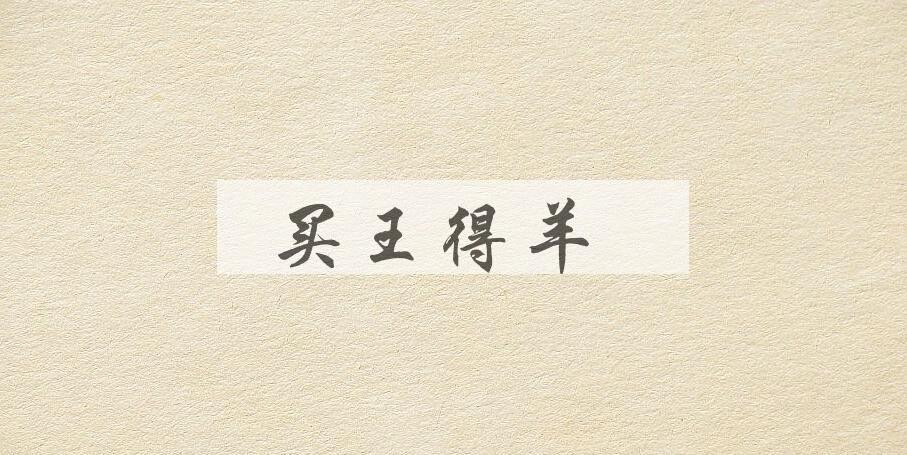 买王得羊